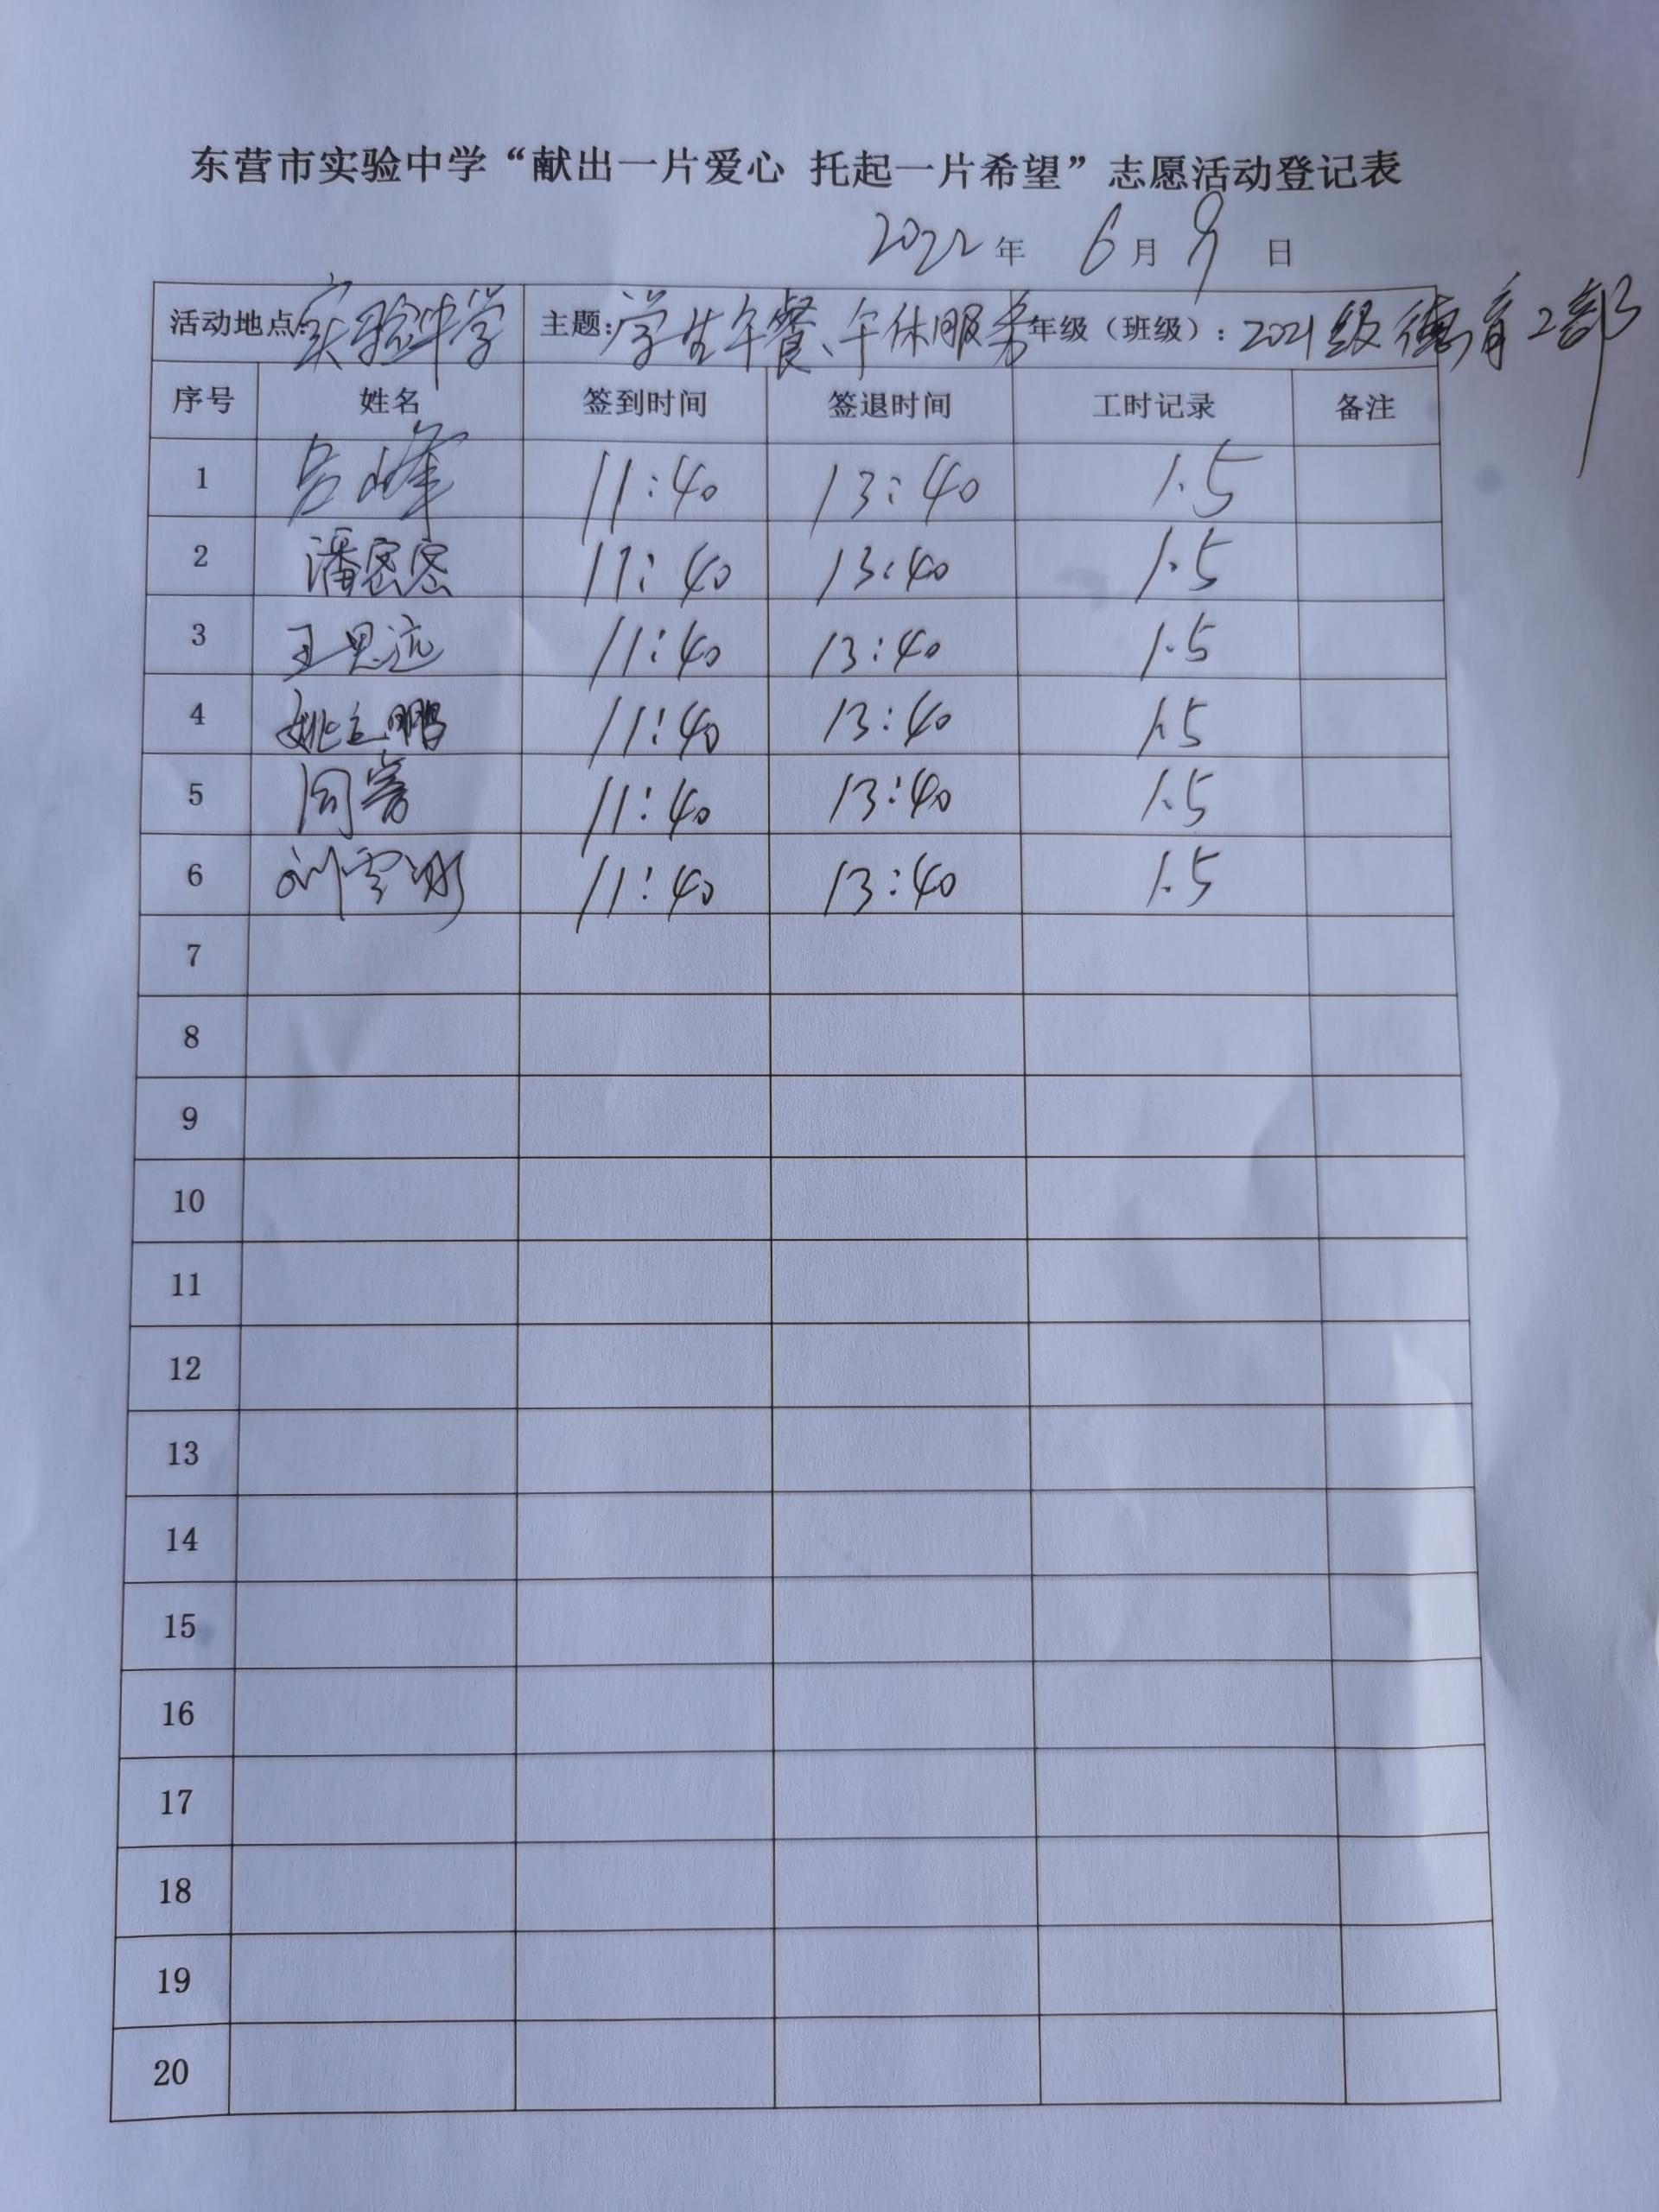 东营市实验中学“献出一片爱心 托起一片希望”志愿活动登记表
2022年 6月9日
活动地点:实验中学 主题:学生午餐、午休服务 年级（班级）:2021级德育2部
序号 姓名 签到时间 签退时间 工时记录 备注
1 吕峰 11:40 13:40 1.5
2 潘密密 11:40 13:40 1.5
3 王思远 11:40 13:40 1.5
4 姚立鹏 11:40 13:40 1.5
5 11:40 13:40 1.5
6 刘雪彬 11:40 13:40 1.5
7
8
9
10
11
12
13
14
15
16
17
18
19
20